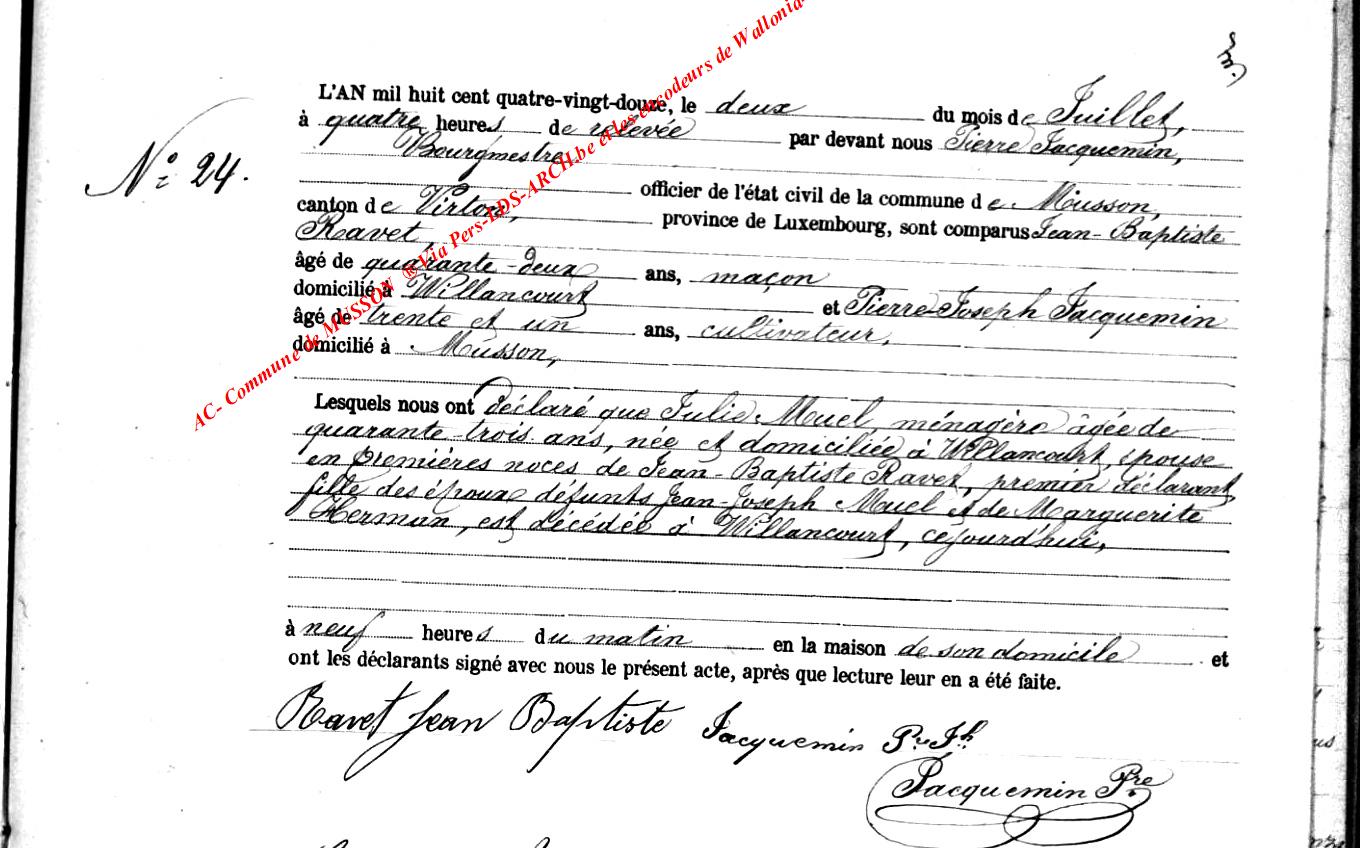 L'AN mil huit cent quatre-vingt-douze, le deux du mois de Juillet,
à quatre heures de relevée par devant nous Pierre Jacquemin,
Bourgmestre
N° 24.
officier de l'état civil de la commune de Musson,
canton de Virton, province de Luxembourg, sont comparus Jean-Baptiste
Ravet,
âgé de quarante-deux ans, maçon
domicilié à Willancourt et Pierre-Joseph Jacquemin
âgé de trente et un ans, cultivateur,
domicilié à Musson,
Lesquels nous ont déclaré que Julie Mouel, ménagère âgée de
quarante-trois ans, née et domiciliée à Willancourt, épouse
en premières noces de Jean-Baptiste Ravet, premier déclarant,
fille des époux défunts Jean-Joseph Mouel et de Marguerite
Herman, est décédée à Willancourt, cejourd'hui,
à neuf heures du matin en la maison de son domicile et
ont les déclarants signé avec nous le présent acte, après que lecture leur en a été faite.
Ravet Jean Baptiste Jacquemin Pre Jh
Jacquemin Pre
AC- Commune de MUSSON ® Via Pers-LDS-ARCH.be et les encodeurs de Wallonia-